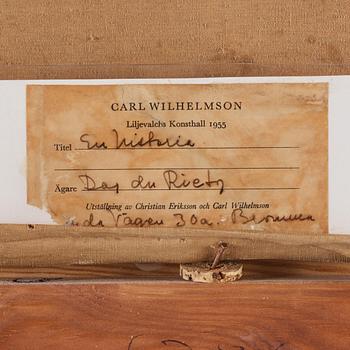 CARL WILHELMSON
Liljevalchs Konsthall 1955
Titel En historia
Ägare Dag du Rietz
Utställning av Christian Eriksson och Carl Wilhelmson
Vägen 30a. Bromma